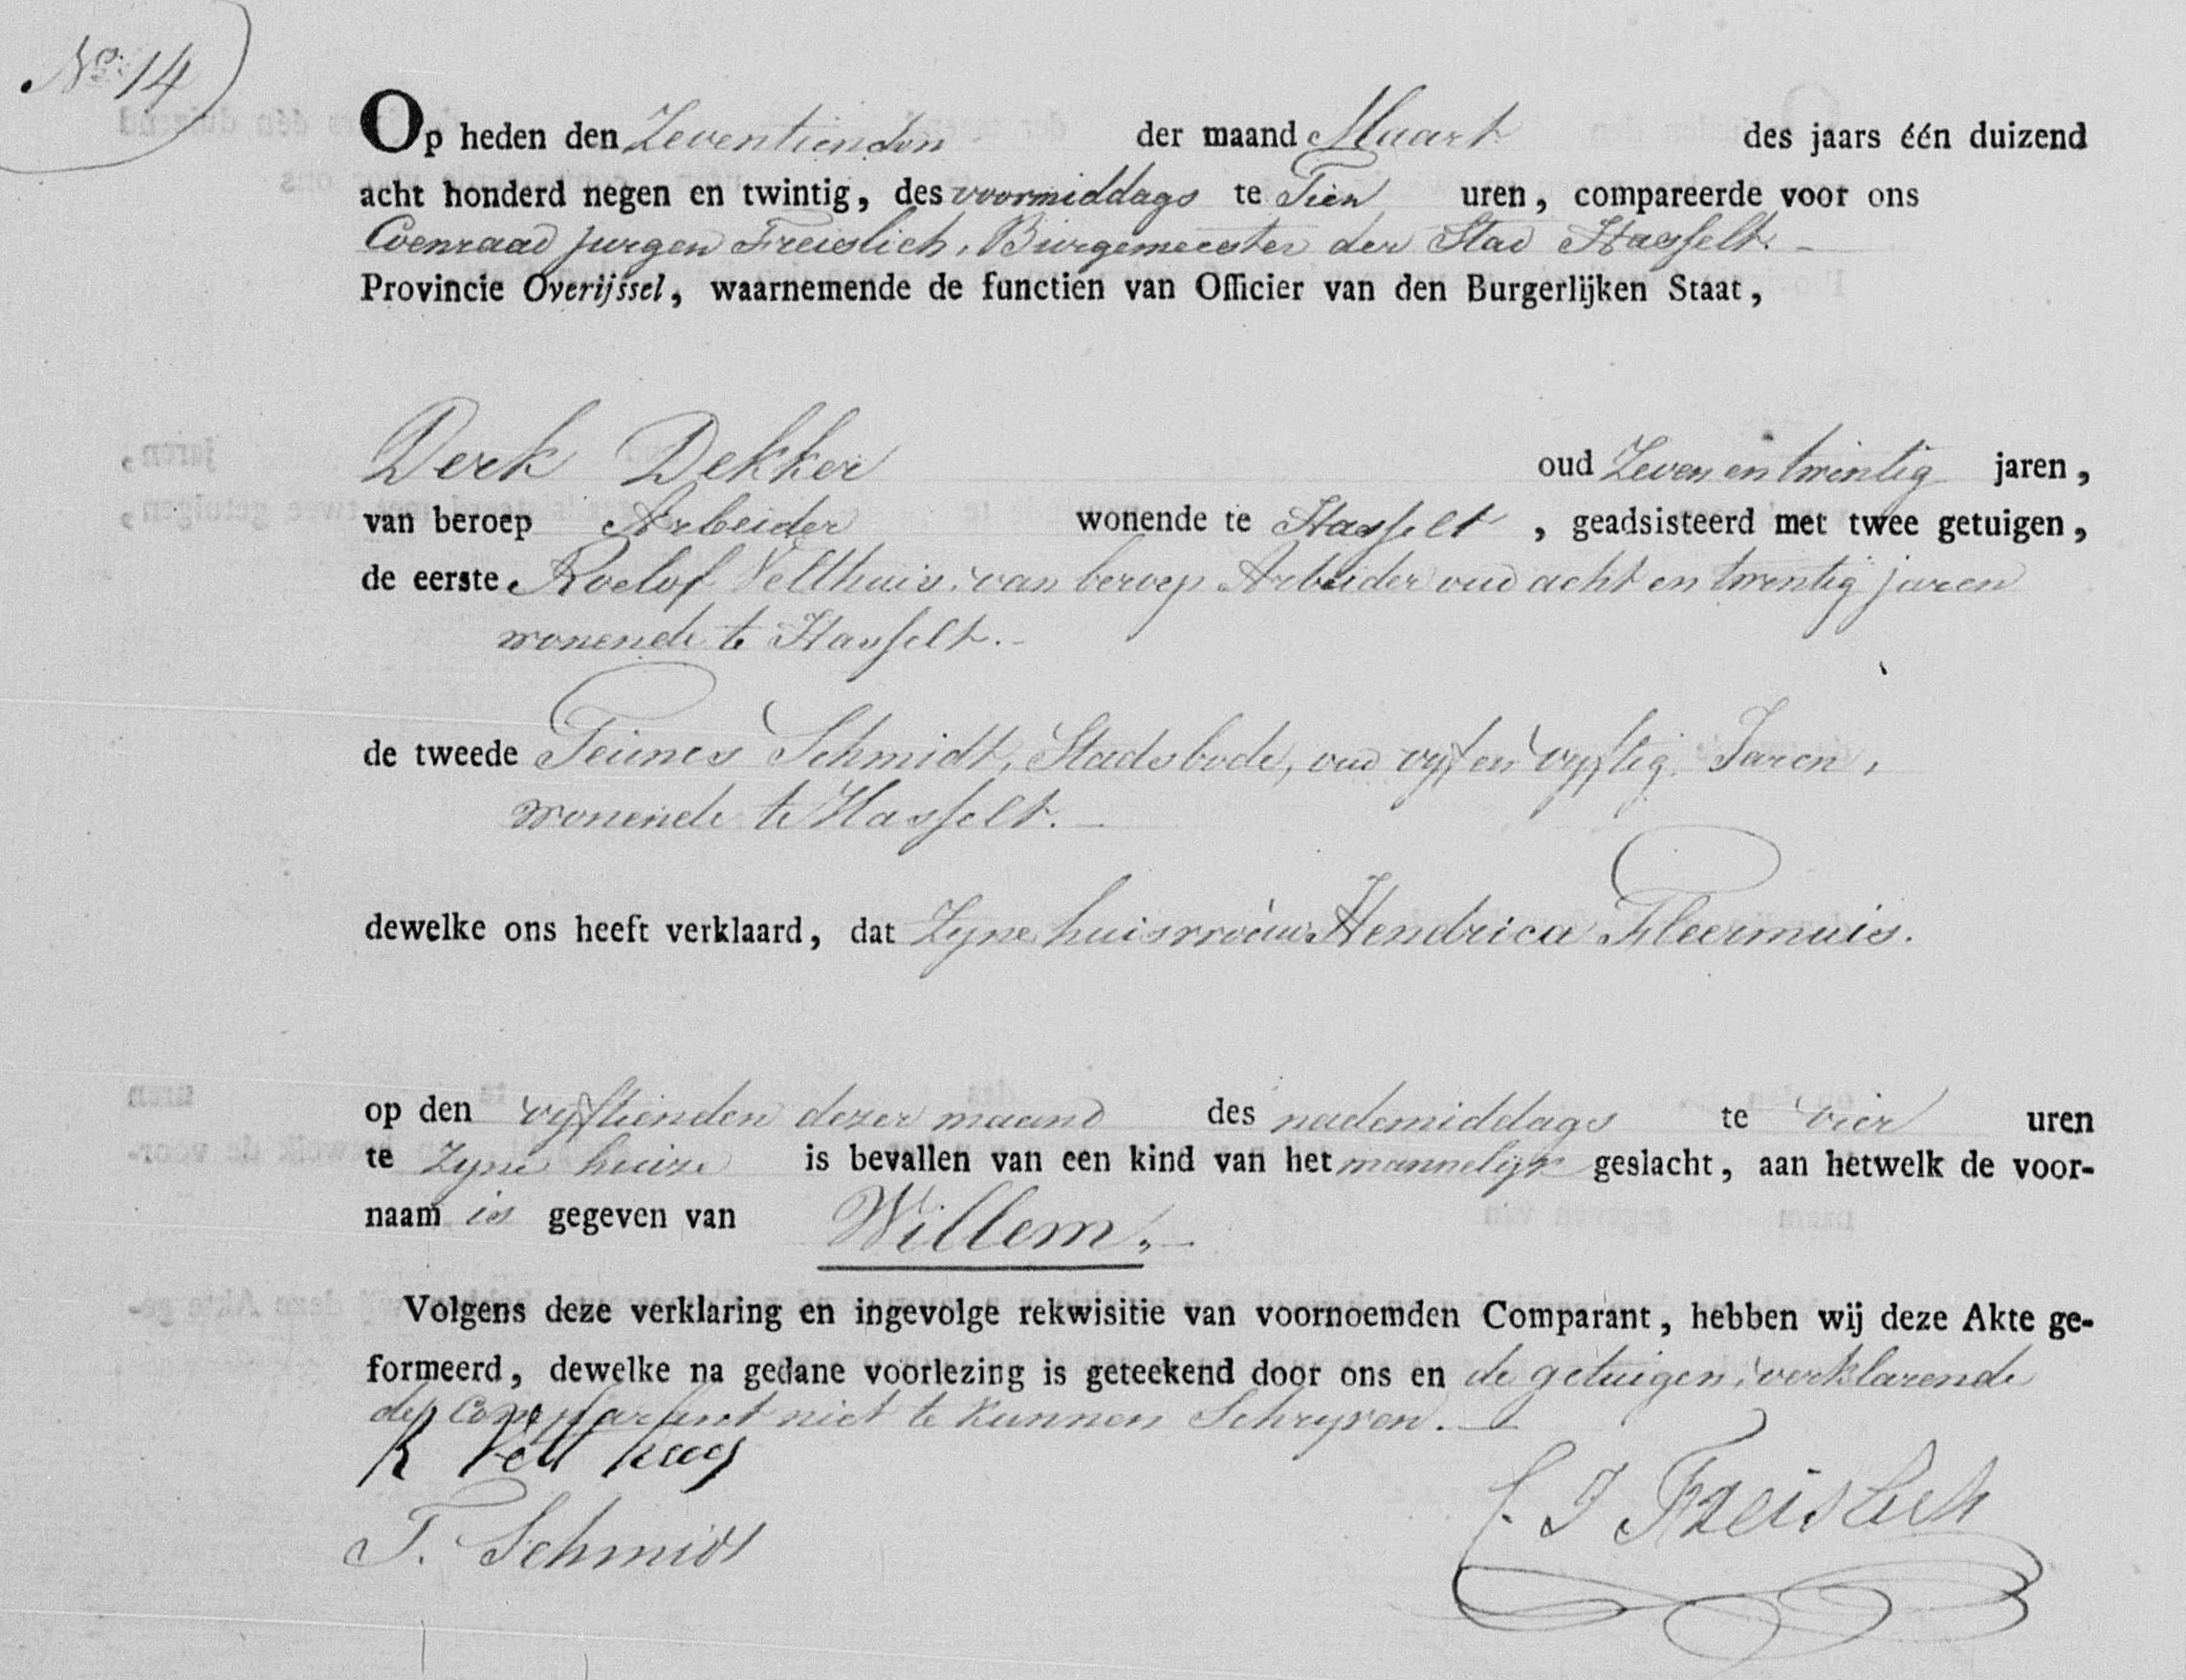 No. 14
Op heden den Zeventienden der maand Maart des jaars één duizend
acht honderd negen en twintig, des voormiddags te Tien uren, compareerde voor ons
Coenraad Jurgen Freislich, Burgemeester der Stad Hasselt. -
Provincie Overijssel, waarnemende de functien van Officier van den Burgerlijken Staat,
Derk Dekker oud Zeven en twintig jaren,
van beroep Arbeider wonende te Hasselt, geadsisteerd met twee getuigen,
de eerste Roelof Velthuis, van beroep Arbeider oud acht en twentig jaren
wonende te Hasselt. -
de tweede Teunes Schmidt, Stadsbode, oud vyf en vyftig Jaren,
wonende te Hasselt. -
dewelke ons heeft verklaard, dat Zyne huisvrouw Hendrica Fleermuis.
op den vyftienden dezer maand des nademiddags te vier uren
te Zyne huize is bevallen van een kind van het mannelyk geslacht, aan hetwelk de voor-
naam is gegeven van Willem. -
Volgens deze verklaring en ingevolge rekwisitie van voornoemden Comparant, hebben wij deze Akte ge-
formeerd, dewelke na gedane voorlezing is geteekend door ons en de getuigen, verklarende
de Comparant niet te kunnen Schryven. -
R Velthuys
T. Schmidt
C. J Freislich